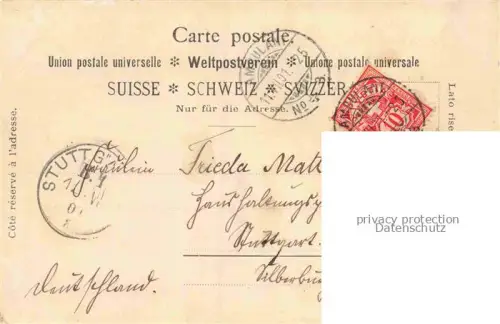 Carte postale.
Union postale universelle ✻ Weltpostverein ✻ Unione postale universale
SUISSE ✻ SCHWEIZ ✻ SVIZZERA
Nur für die Adresse.
Côté réservé à l'adresse.
Lato rise
AMBULANT
No
AMBULANT
10
STUTTG
Fräulein Frieda Matt
Haushaltungs
Stuttgart.
Silberbu
Deutschland.
privacy protection
Datenschutz